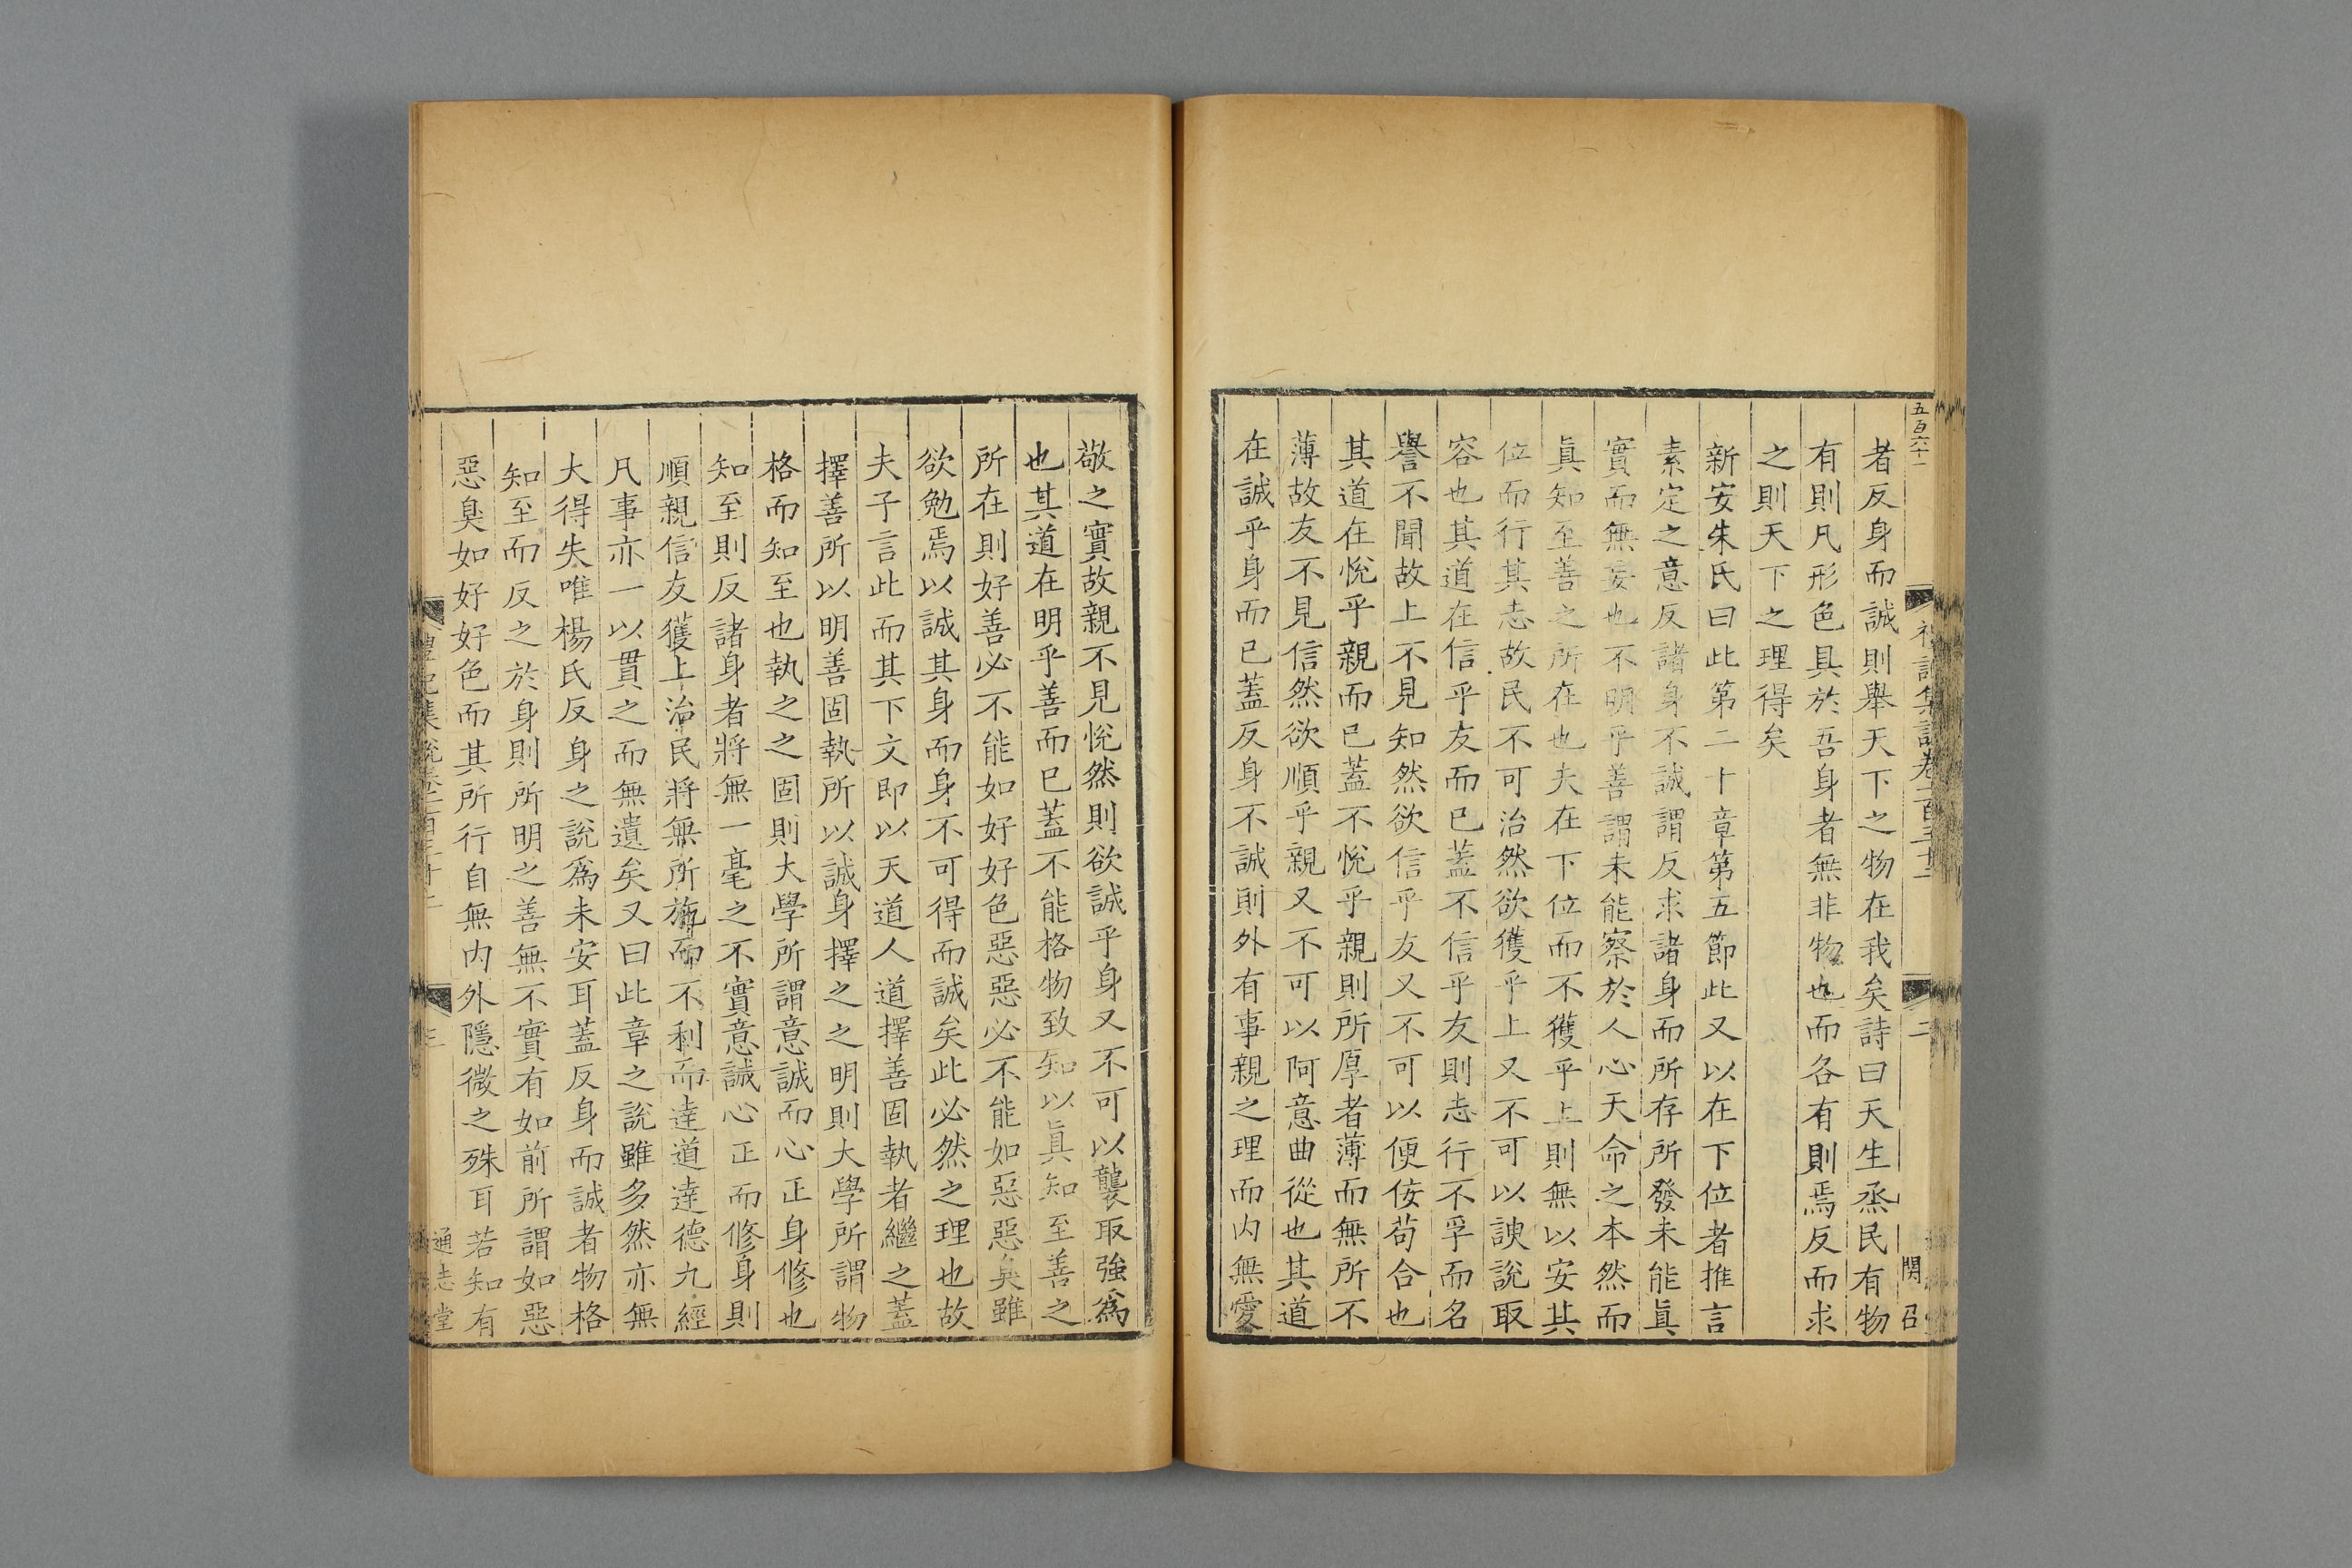 五百六十一
者反身而誠則舉天下之物在我矣詩曰天生烝民有物
有則凡形色具於吾身者無非物也而各有則焉反而求
之則天下之理得矣
新安朱氏曰此第二十章第五節此又以在下位者推言
素定之意反諸身不誠謂反求諸身而所存所發未能眞
實而無妄也不明乎善謂未能察於人心天命之本然而
眞知至善之所在也夫在下位而不獲乎上則無以安其
位而行其志故民不可治然欲獲乎上又不可以諛說取
容也其道在信乎友而已蓋不信乎友則志行不孚而名
譽不聞故上不見知然欲信乎友又不可以便佞苟合也
其道在悅乎親而已蓋不悅乎親則所厚者薄而無所不
薄故友不見信然欲順乎親又不可以阿意曲從也其道
在誠乎身而已蓋反身不誠則外有事親之理而内無愛
敬之實故親不見悅然則欲誠乎身又不可以襲取強爲
也其道在明乎善而已蓋不能格物致知以眞知至善之
所在則好善必不能如好好色惡惡必不能如惡惡臭雖
欲勉焉以誠其身而身不可得而誠矣此必然之理也故
夫子言此而其下文即以天道人道擇善固執者繼之蓋
擇善所以明善固執所以誠身擇之之明則大學所謂物
格而知至也執之之固則大學所謂意誠而心正身修也
知至則反諸身者將無一毫之不實意誠心正而修身則
順親信友獲上治民將無所施而不利而達道達德九經
凡事亦一以貫之而無遺矣又曰此章之說雖多然亦無
大得失唯楊氏反身之說爲未安耳蓋反身而誠者物格
知至而反之於身則所明之善無不實有如前所謂如惡
惡臭如好好色而其所行自無内外隱微之殊耳若知有
通志堂